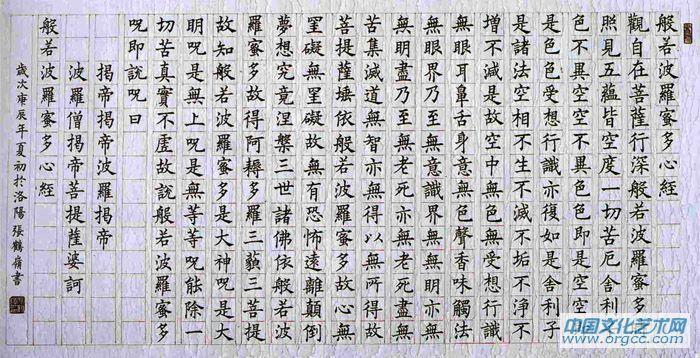 般若波羅蜜多心經
觀自在菩薩行深般若波羅蜜多時
照見五蘊皆空度一切苦厄舍利子
色不異空空不異色色即是空空即
是色受想行識亦復如是舍利子
是諸法空相不生不滅不垢不淨不
增不減是故空中無色無受想行識
無眼耳鼻舌身意無色聲香味觸法
無眼界乃至無意識界無無明亦無
無明盡乃至無老死亦無老死盡無
苦集滅道無智亦無得以無所得故
菩提薩埵依般若波羅蜜多故心無
罣礙無罣礙故無有恐怖遠離顛倒
夢想究竟涅槃三世諸佛依般若波
羅蜜多故得阿耨多羅三藐三菩提
故知般若波羅蜜多是大神呪是大
明呪是無上呪是無等等呪能除一
切苦真實不虛故說般若波羅蜜多
呪即說呪曰
揭帝揭帝波羅揭帝
波羅僧揭帝菩提薩婆訶
般若波羅蜜多心經
歲次庚辰年夏初於洛陽 張鶴書
中国文化艺术网
www.orgcc.com